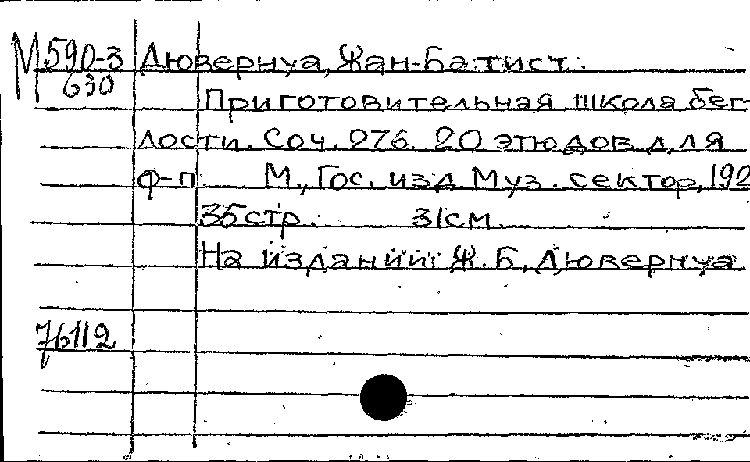 М 590-3 Дювернуа, Жан-Батист.
630
Приготовительная школа бег-
лости. Соч. 276. 20 этюдов для
ф-п М., Гос. изд Муз. сектор, 192
35 стр. 31см.
На издании: Ж. Б. Дювернуа
76112